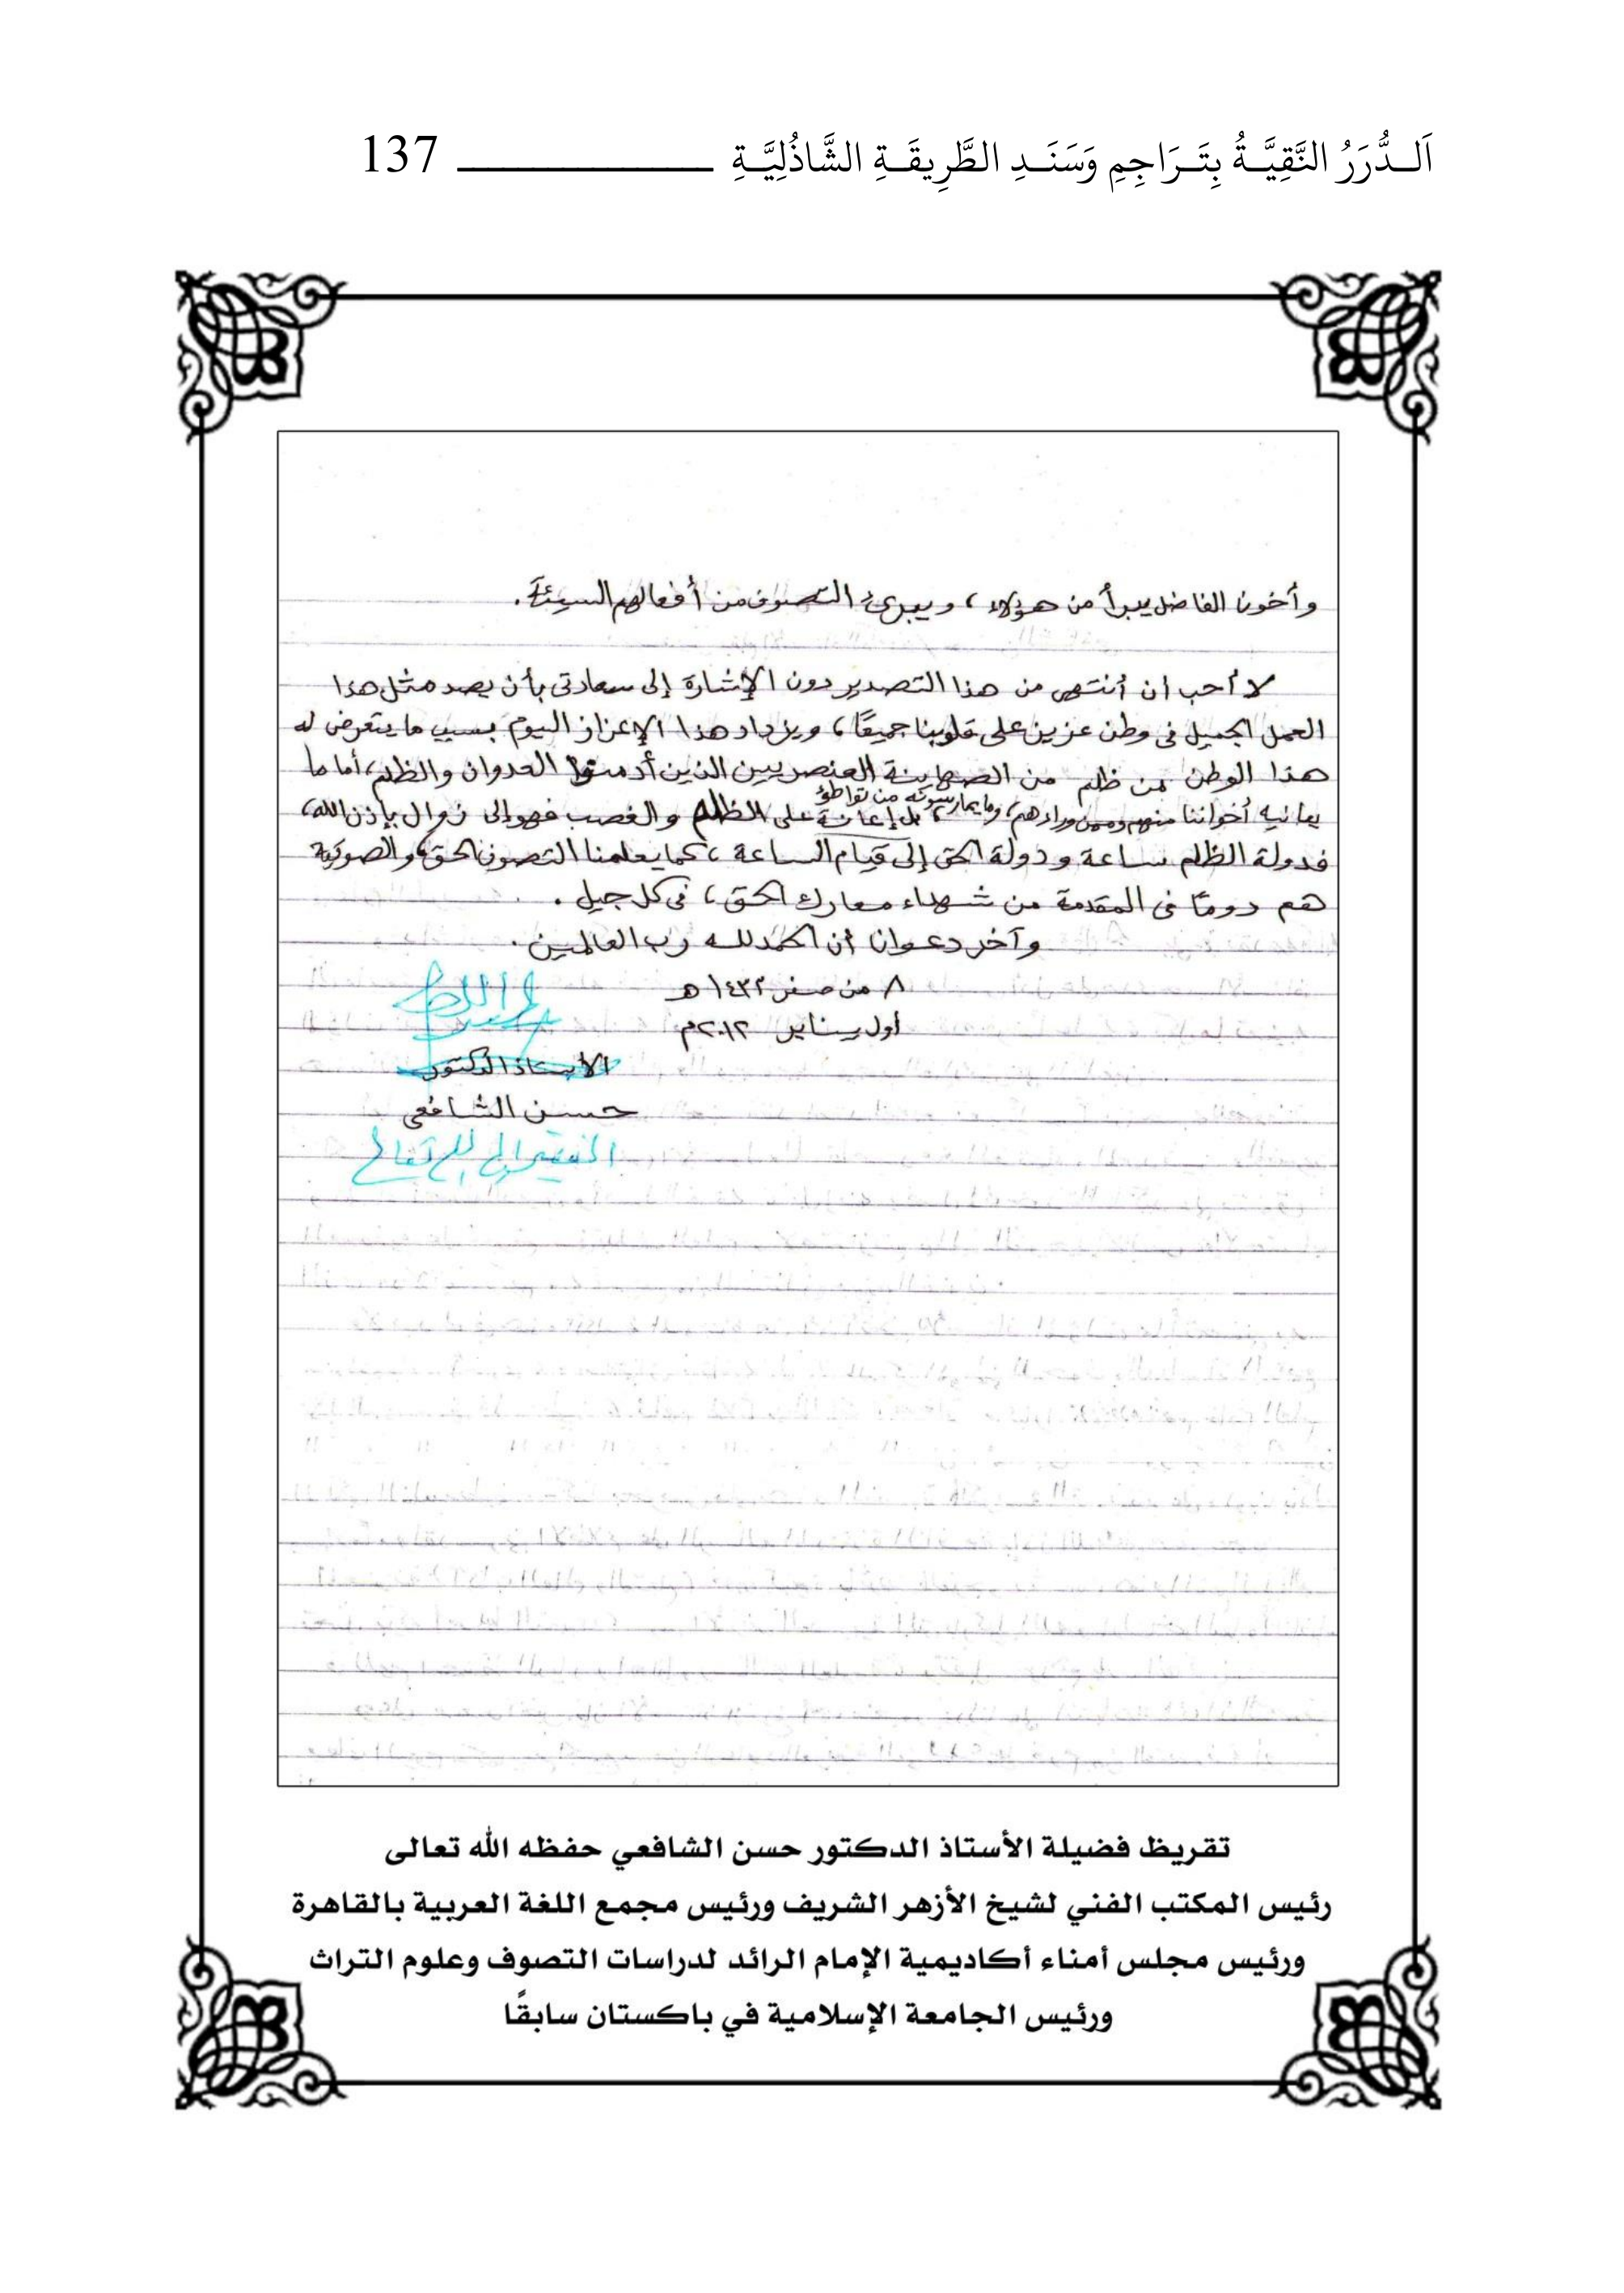 اَلدُّرَرُ النَّقِيَّةُ بِتَرَاجِمِ وَسَنَدِ الطَّرِيقَةِ الشَّاذُلِيَّةِ 137
وأخونا الفاضل يبرأ من هؤلاء، ويبرئ التصوف من أفعالهم السيئة.
لا أحب أن أنتهى من هذا التصدير دون الإشارة إلى سعادتى بأن يصد مثل هذا
العمل الجميل فى وطن عزيز على قلوبنا جميعًا، ويزداد هذا الإعزاز اليوم بسبب ما يتعرض له
هذا الوطن من ظلم من الصهاينة العنصريين الذين أدمنوا العدوان والظلم، أما ما
يعانيه أخواننا منهم وممن وراءهم، وما يمارسونه من تواطؤ، بل إعانة على الظلم والغصب فهو إلى زوال بإذن الله،
فدولة الظلم ساعة ودولة الحق إلى قيام الساعة، كما يعلمنا التصوف الحق، والصوفية
هم دومًا فى المقدمة من شهداء معارك الحق، فى كل جيل.
وآخر دعوانا أن الحمد لله رب العالمين.
٨ من صفر ١٤٣٢هـ
أول يناير ٢٠١٢م
الأستاذ الدكتور
حسن الشافعى
الفقير إلى الله تعالى
تقريظ فضيلة الأستاذ الدكتور حسن الشافعي حفظه الله تعالى
رئيس المكتب الفني لشيخ الأزهر الشريف ورئيس مجمع اللغة العربية بالقاهرة
ورئيس مجلس أمناء أكاديمية الإمام الرائد لدراسات التصوف وعلوم التراث
ورئيس الجامعة الإسلامية في باكستان سابقًا